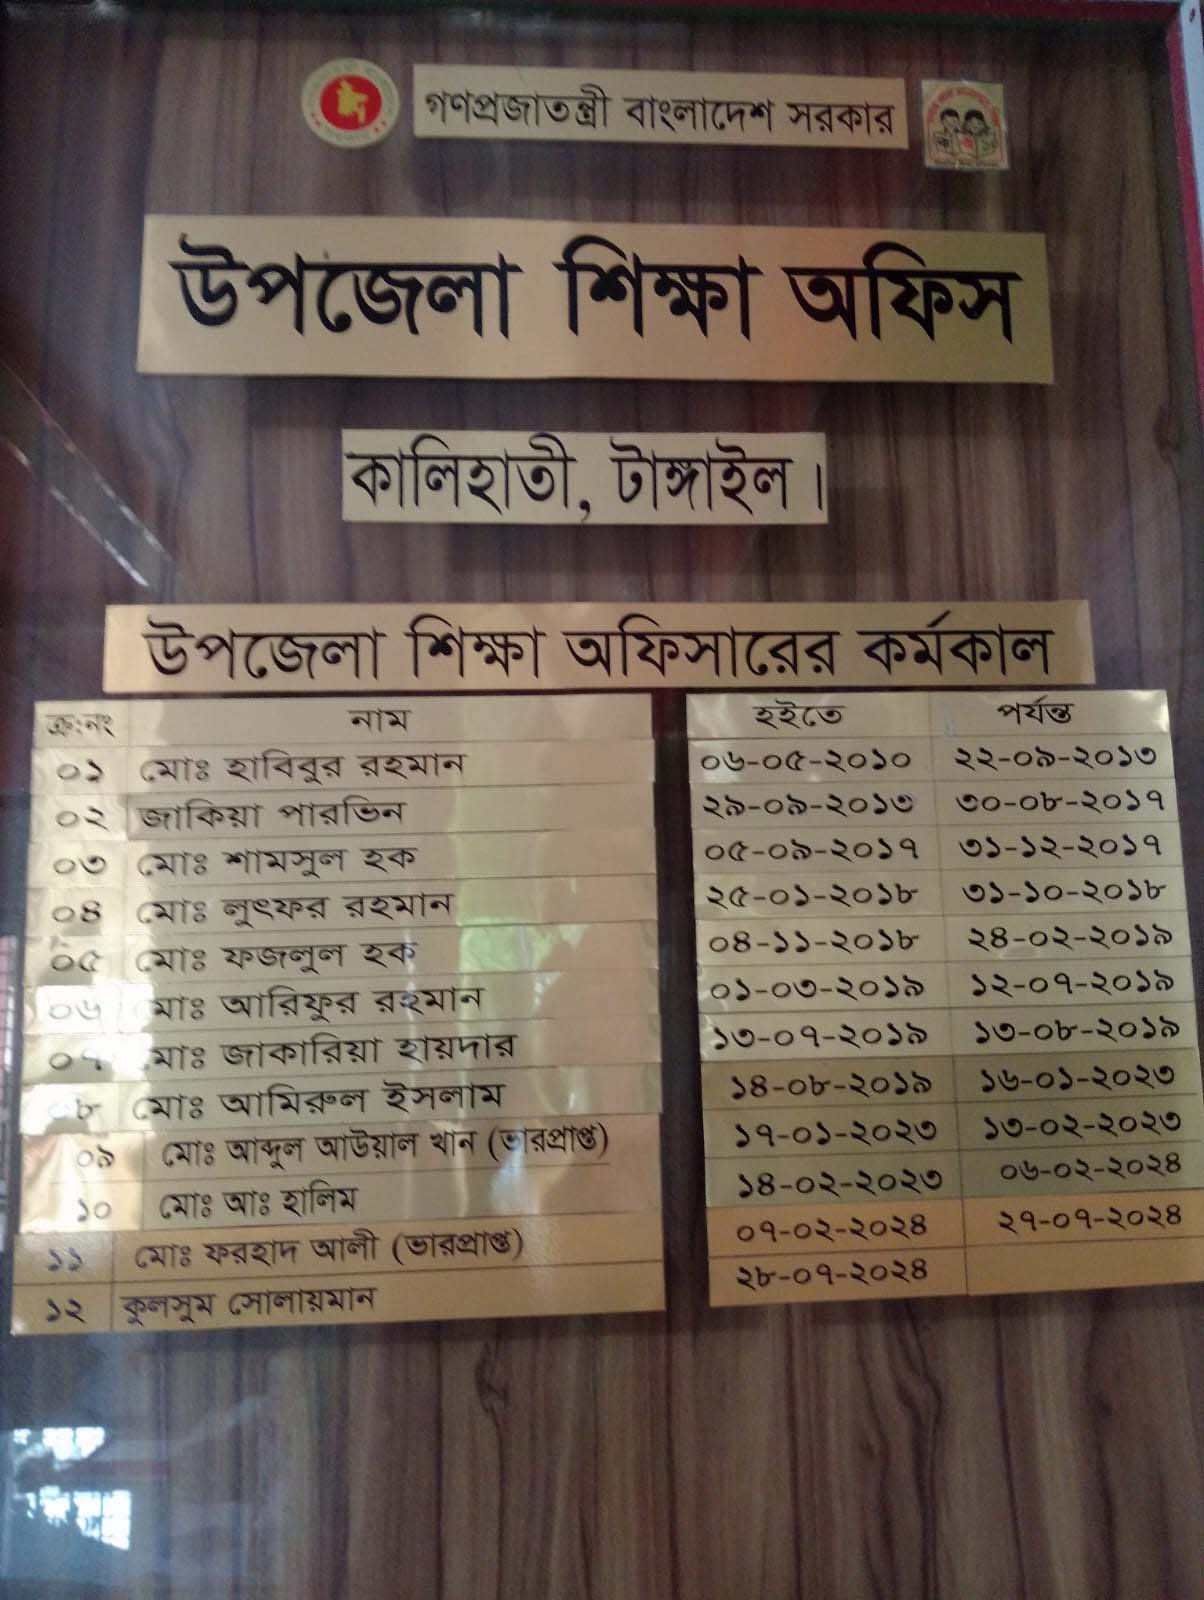 গণপ্রজাতন্ত্রী বাংলাদেশ সরকার
উপজেলা শিক্ষা অফিস
কালিহাতী, টাঙ্গাইল।
উপজেলা শিক্ষা অফিসারের কর্মকাল
ক্র:নং নাম হইতে পর্যন্ত
০১ মোঃ হাবিবুর রহমান ০৬-০৫-২০১০ ২২-০৯-২০১৩
০২ জাকিয়া পারভিন ২৯-০৯-২০১৩ ৩০-০৮-২০১৭
০৩ মোঃ শামসুল হক ০৫-০৯-২০১৭ ৩১-১২-২০১৭
০৪ মোঃ লুৎফর রহমান ২৫-০১-২০১৮ ৩১-১০-২০১৮
০৫ মোঃ ফজলুল হক ০৪-১১-২০১৮ ২৪-০২-২০১৯
০৬ মোঃ আরিফুর রহমান ০১-০৩-২০১৯ ১২-০৭-২০১৯
০৭ মোঃ জাকারিয়া হায়দার ১৩-০৭-২০১৯ ১৩-০৮-২০১৯
০৮ মোঃ আমিরুল ইসলাম ১৪-০৮-২০১৯ ১৬-০১-২০২৩
০৯ মোঃ আব্দুল আউয়াল খান (ভারপ্রাপ্ত) ১৭-০১-২০২৩ ১৩-০২-২০২৩
১০ মোঃ আঃ হালিম ১৪-০২-২০২৩ ০৬-০২-২০২৪
১১ মোঃ ফরহাদ আলী (ভারপ্রাপ্ত) ০৭-০২-২০২৪ ২৭-০৭-২০২৪
১২ কুলসুম সোলায়মান ২৮-০৭-২০২৪